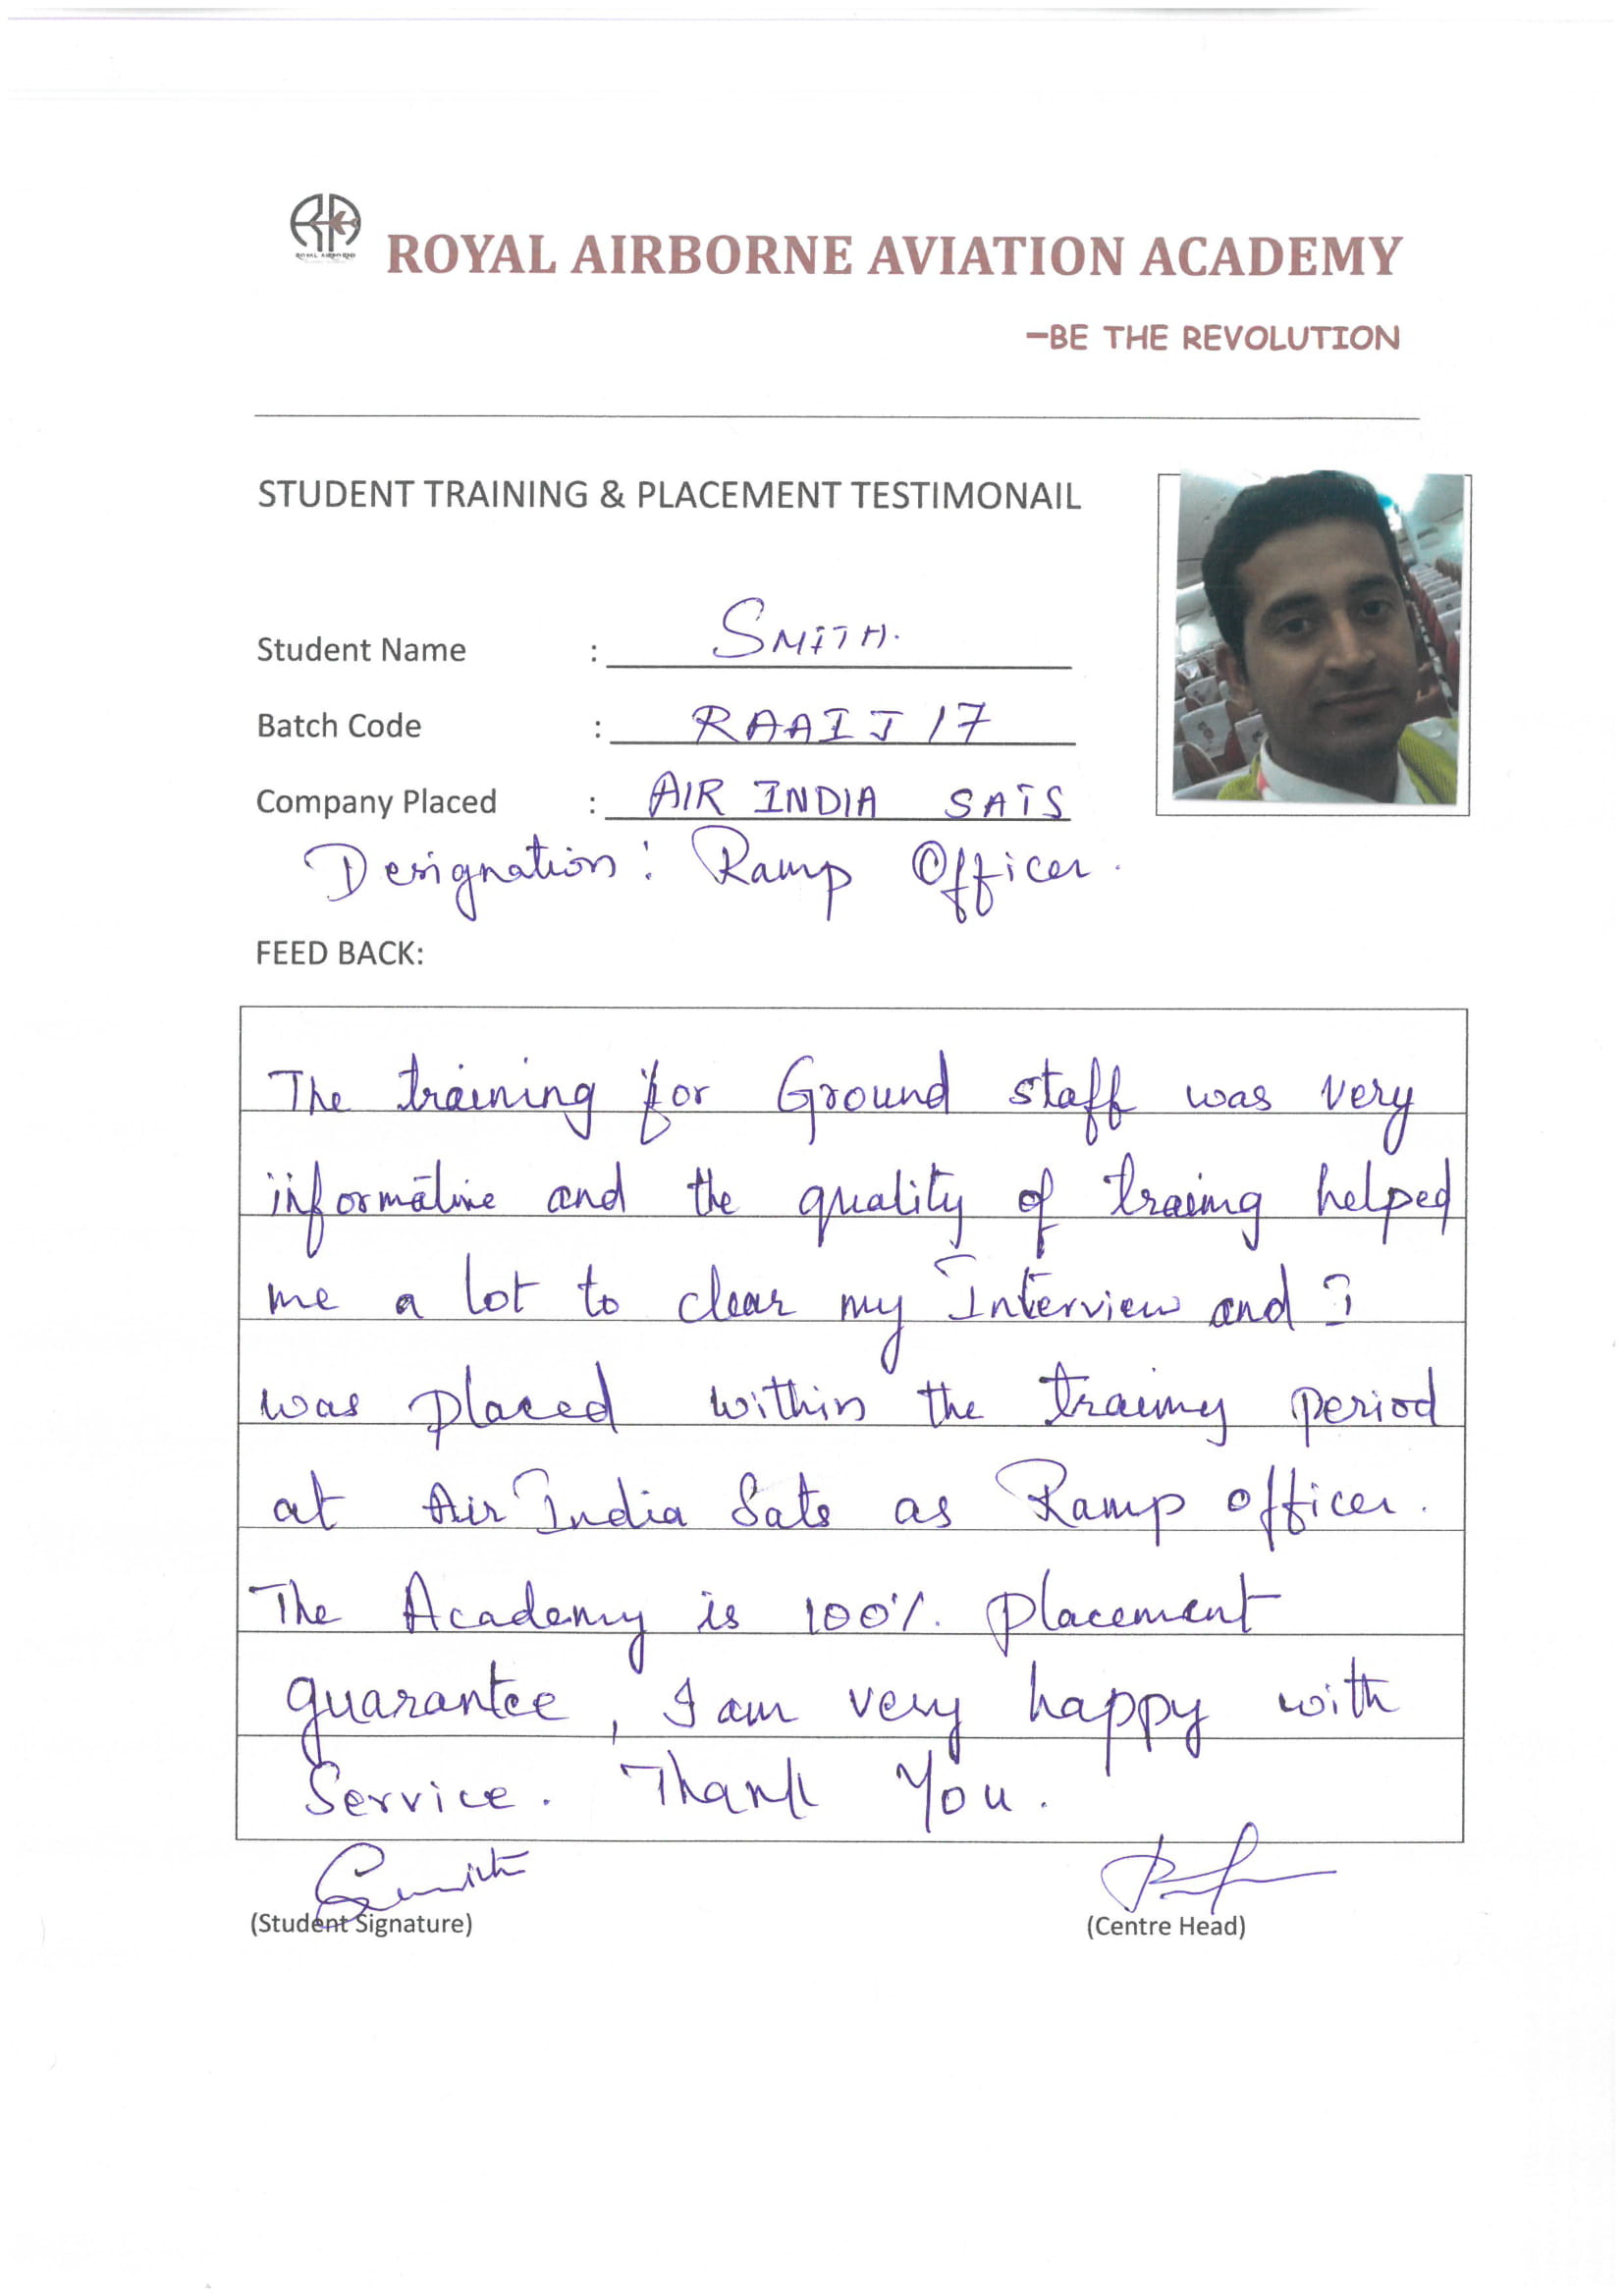 ROYAL AIRBORNE
ROYAL AIRBORNE AVIATION ACADEMY
–BE THE REVOLUTION
STUDENT TRAINING & PLACEMENT TESTIMONAIL
Student Name : SMITH.
Batch Code : RAAIJ 17
Company Placed : AIR INDIA SATS
Designation: Ramp Officer.
FEED BACK:
The training for Ground staff was very
informative and the quality of traeing helped
me a lot to clear my Interview and I
was placed within the training period
at Air India Sats as Ramp officer.
The Academy is 100% placement
guarantee, I am very happy with
Service. Thank You.
Smith
(Student Signature) (Centre Head)